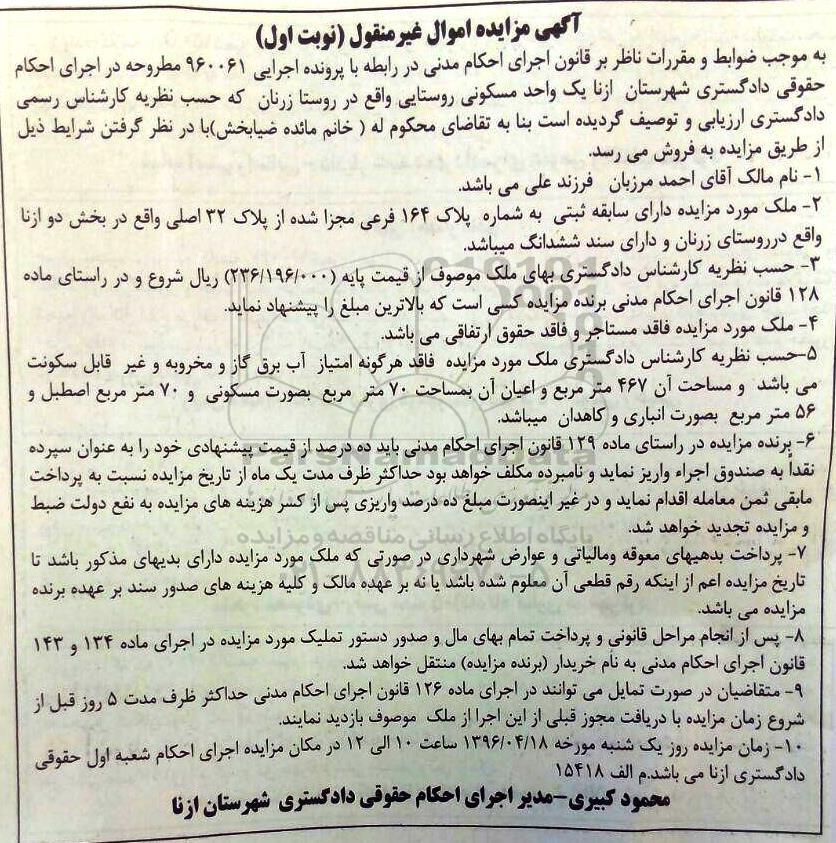 آگهی مزایده اموال غیرمنقول (نوبت اول)
به موجب ضوابط و مقررات ناظر بر قانون اجرای احکام مدنی در رابطه با پرونده اجرایی ۹۶۰۰۶۱ مطروحه در اجرای احکام
حقوقی دادگستری شهرستان ازنا یک واحد مسکونی روستایی واقع در روستا زرنان که حسب نظریه کارشناس رسمی
دادگستری ارزیابی و توصیف گردیده است بنا به تقاضای محکوم له ( خانم مائده ضیابخش)با در نظر گرفتن شرایط ذیل
از طریق مزایده به فروش می رسد.
۱- نام مالک آقای احمد مرزبان فرزند علی می باشد.
۲- ملک مورد مزایده دارای سابقه ثبتی به شماره پلاک ۱۶۴ فرعی مجزا شده از پلاک ۳۲ اصلی واقع در بخش دو ازنا
واقع درروستای زرنان و دارای سند ششدانگ میباشد.
۳- حسب نظریه کارشناس دادگستری بهای ملک موصوف از قیمت پایه (۲۳۶/۱۹۶/۰۰۰) ریال شروع و در راستای ماده
۱۲۸ قانون اجرای احکام مدنی برنده مزایده کسی است که بالاترین مبلغ را پیشنهاد نماید.
۴- ملک مورد مزایده فاقد مستاجر و فاقد حقوق ارتفاقی می باشد.
۵-حسب نظریه کارشناس دادگستری ملک مورد مزایده فاقد هرگونه امتیاز آب برق گاز و مخروبه و غیر قابل سکونت
می باشد و مساحت آن ۴۶۷ متر مربع و اعیان آن بمساحت ۷۰ متر مربع بصورت مسکونی و ۷۰ متر مربع اصطبل و
۵۶ متر مربع بصورت انباری و کاهدان میباشد.
۶- برنده مزایده در راستای ماده ۱۲۹ قانون اجرای احکام مدنی باید ده درصد از قیمت پیشنهادی خود را به عنوان سپرده
نقداً به صندوق اجراء واریز نماید و نامبرده مکلف خواهد بود حداکثر ظرف مدت یک ماه از تاریخ مزایده نسبت به پرداخت
مابقی ثمن معامله اقدام نماید و در غیر اینصورت مبلغ ده درصد واریزی پس از کسر هزینه های مزایده به نفع دولت ضبط
و مزایده تجدید خواهد شد.
۷- پرداخت بدهیهای معوقه ومالیاتی و عوارض شهرداری در صورتی که ملک مورد مزایده دارای بدیهای مذکور باشد تا
تاریخ مزایده اعم از اینکه رقم قطعی آن معلوم شده باشد یا نه بر عهده مالک و کلیه هزینه های صدور سند بر عهده برنده
مزایده می باشد.
۸- پس از انجام مراحل قانونی و پرداخت تمام بهای مال و صدور دستور تملیک مورد مزایده در اجرای ماده ۱۳۴ و ۱۴۳
قانون اجرای احکام مدنی به نام خریدار (برنده مزایده) منتقل خواهد شد.
۹- متقاضیان در صورت تمایل می توانند در اجرای ماده ۱۲۶ قانون اجرای احکام مدنی حداکثر ظرف مدت ۵ روز قبل از
شروع زمان مزایده با دریافت مجوز قبلی از این اجرا از ملک موصوف بازدید نمایند.
۱۰- زمان مزایده روز یک شنبه مورخه ۱۳۹۶/۰۴/۱۸ ساعت ۱۰ الی ۱۲ در مکان مزایده اجرای احکام شعبه اول حقوقی
دادگستری ازنا می باشد.م الف ۱۵۴۱۸
محمود کبیری-مدیر اجرای احکام حقوقی دادگستری شهرستان ازنا